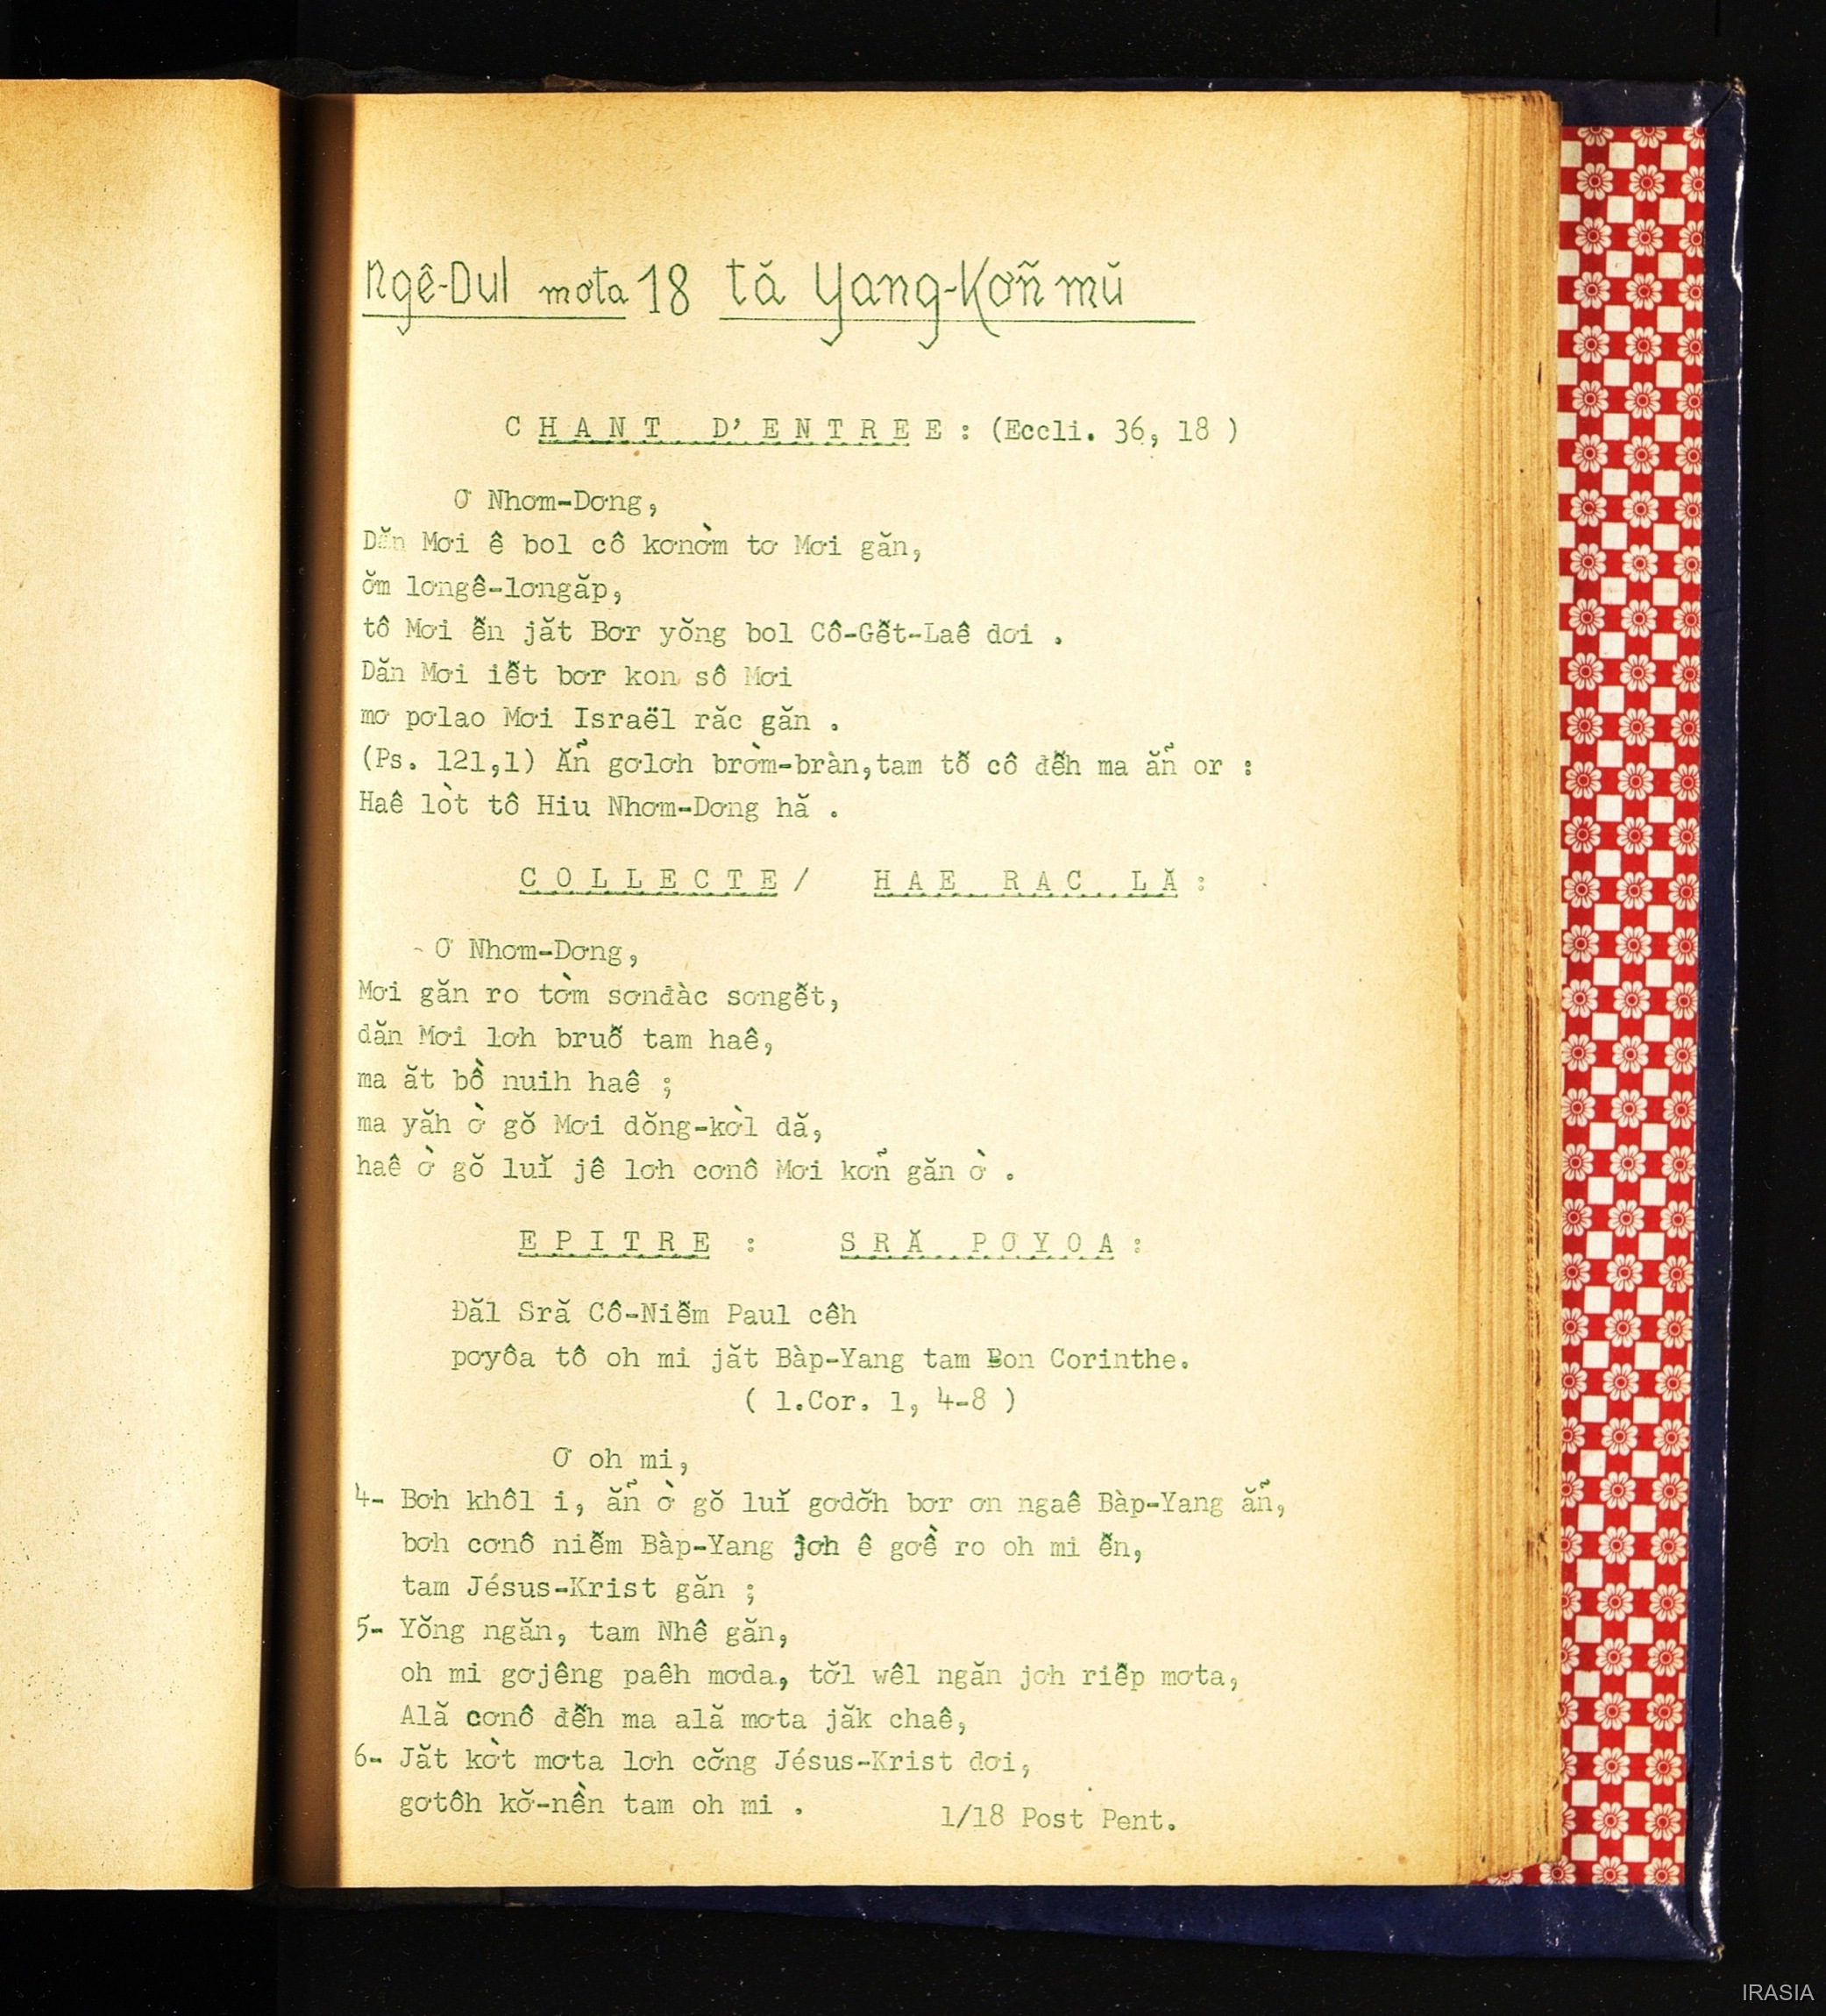 Ngê-Dul mơta 18 tă Yang-Koñ mŭ
C H A N T D' E N T R E E : (Eccli. 36, 18 )
Ơ Nhơm-Dơng,
Dăn Mơi ê bol cô kơnờm tơ Mơi găn,
ŏm lơngê-lơngăp,
tô Mơi ễn jăt Bơr yŏng bol Cô-Gễt-Laê dơi .
Dăn Mơi iễt bơr kon sô Mơi
mơ pơlao Mơi Israël răc găn .
(Ps. 121,1) Ăñ gơlơh brờm-bràn,tam tỗ cô đễh ma ăñ or :
Haê lòt tô Hiu Nhơm-Dơng hă .
C O L L E C T E / H A E R A C L Ă :
Ơ Nhơm-Dơng,
Mơi găn ro tờm sơnđàc sơngễt,
dăn Mơi lơh bruỗ tam haê,
ma ăt bồ nuih haê ;
ma yăh ờ gŏ Mơi dŏng-kờl dă,
haê ờ gŏ luĭ jê lơh cơnô Mơi koñ găn ờ .
E P I T R E : S R Ă P Ơ Y O A :
Đăl Sră Cô-Niễm Paul cêh
pơyôa tô oh mi jăt Bàp-Yang tam Bon Corinthe.
( 1.Cor. 1, 4-8 )
Ơ oh mi,
4- Bơh khôl i, ăñ ờ gŏ luĭ gơdơ̆h bơr ơn ngaê Bàp-Yang ăñ,
bơh cơnô niễm Bàp-Yang joh ê gơề ro oh mi ễn,
tam Jésus-Krist găn ;
5- Yŏng ngăn, tam Nhê găn,
oh mi gơjêng paêh mơda, tơ̆l wêl ngăn joh riễp mơta,
Ală cơnô đễh ma ală mơta jăk chaê,
6- Jăt kờt mơta lơh cơ̆ng Jésus-Krist dơi,
gơtôh kơ̆-nền tam oh mi .
1/18 Post Pent.
IRASIA